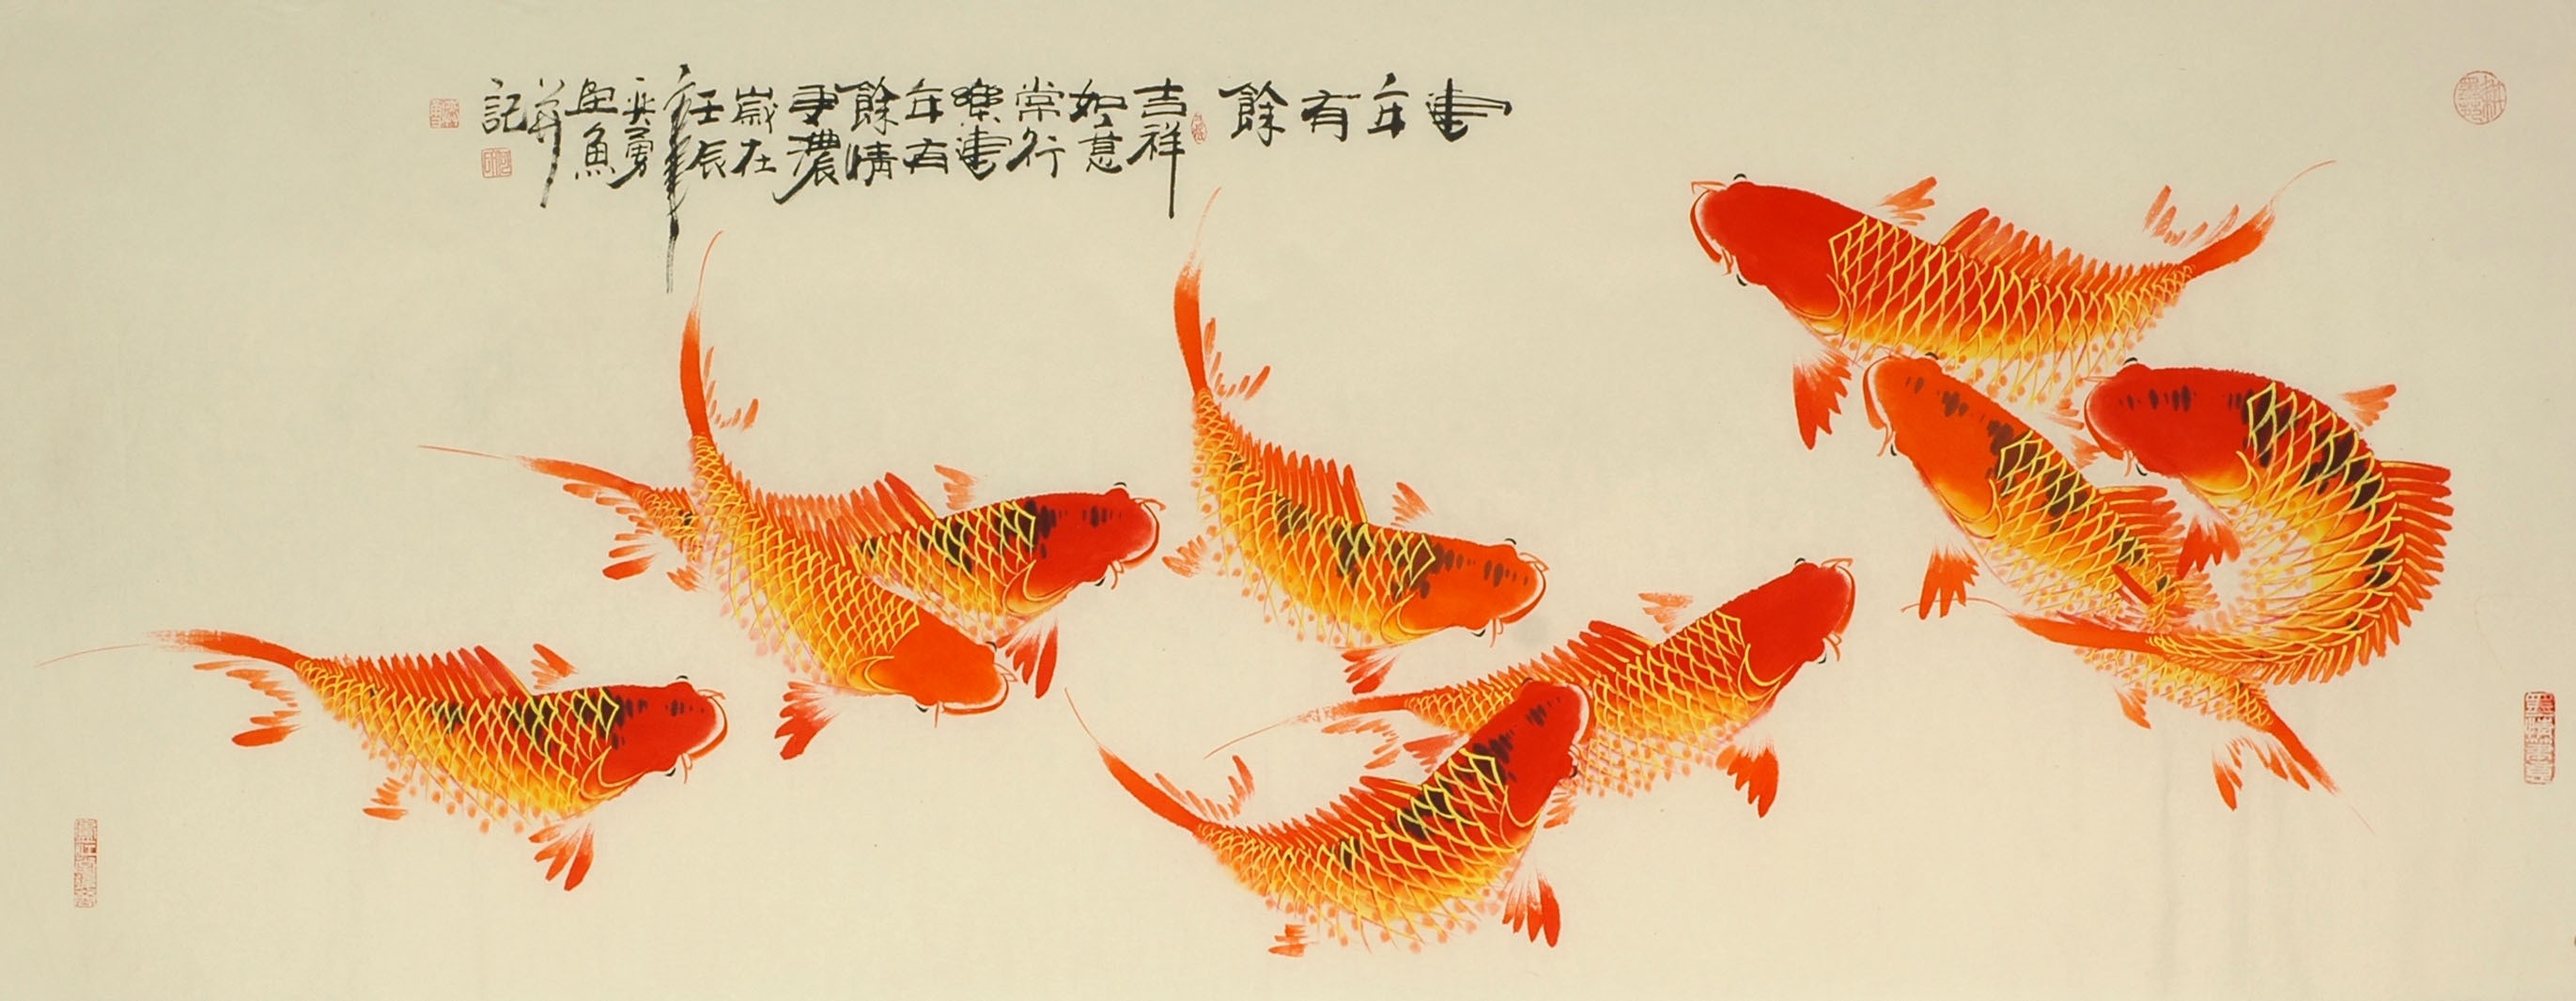 連年有餘
吉祥
如意
常行
樂連
年有
餘情
更濃
歲在
壬辰
年
勇
魚
并
記